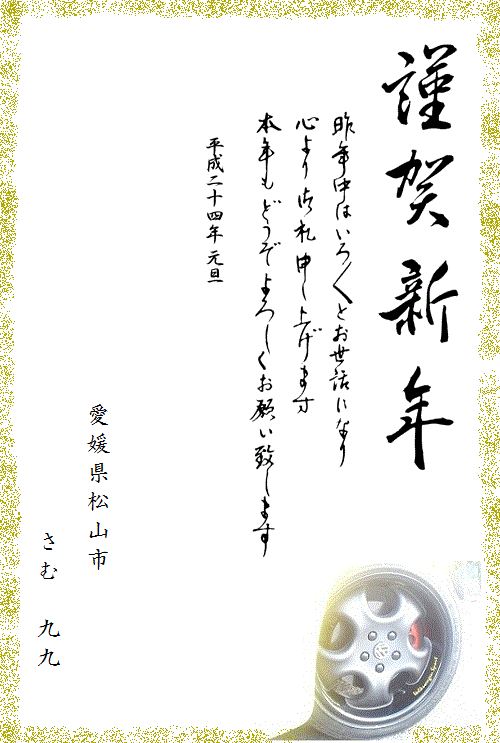 謹賀新年
昨年中はいろ〳〵とお世話になり
心より御礼申し上げます
本年もどうぞよろしくお願い致します
平成二十四年 元旦
愛媛県松山市
さむ 九九